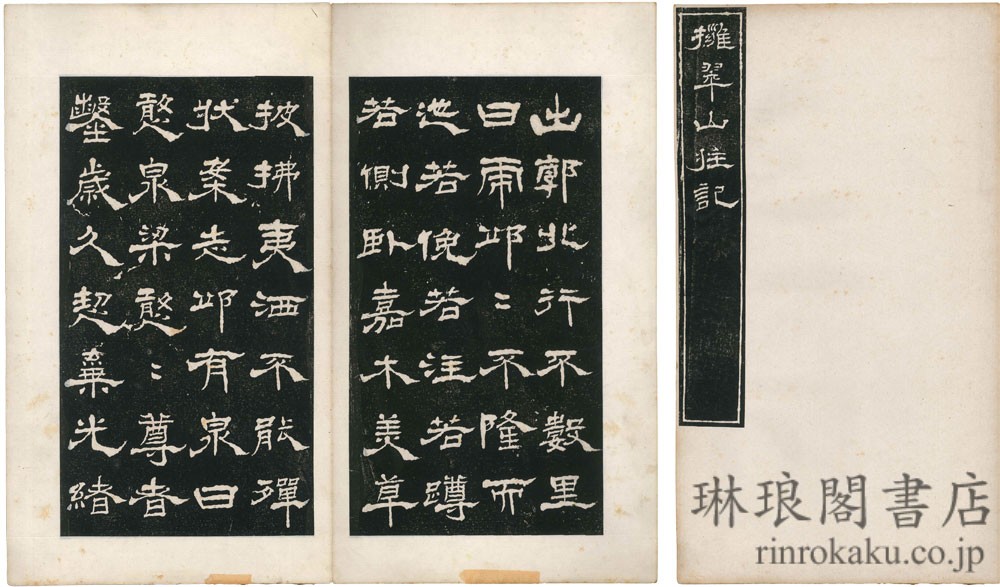 擁翠山莊記
出郭北行不數里
曰虎邱〻不隆而
迆若俛若注若蹲
若側臥嘉木美草
披拂夷洒不能殫
狀案志邱有泉曰
憨泉梁憨〻尊者
鑿歲久恝棄光緒
琳琅閣書店
rinrokaku.co.jp